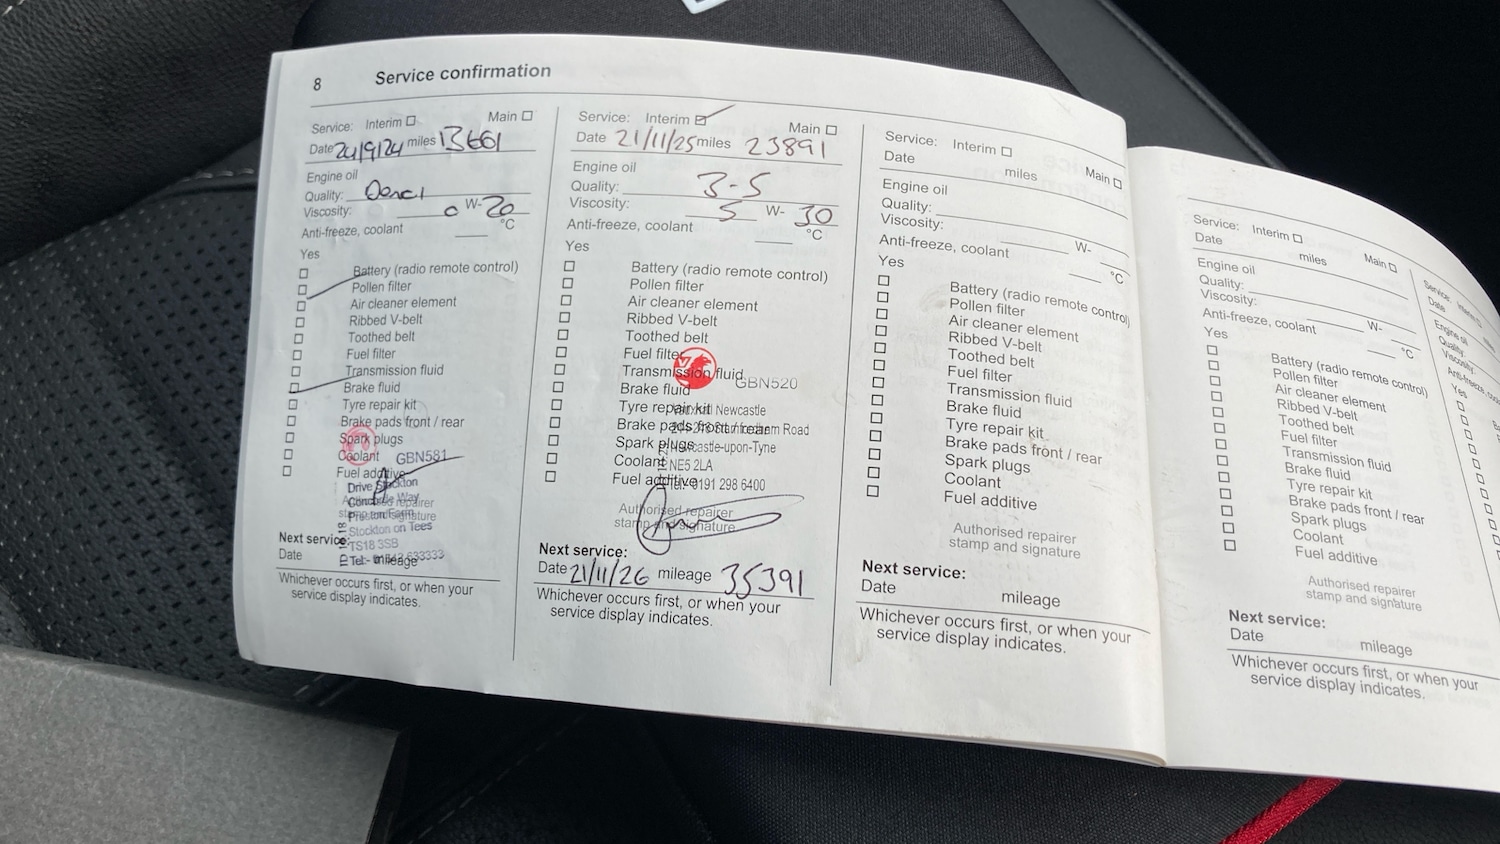 8 Service confirmation
Service: Interim Main
Date 24/9/24 miles 13661
Engine oil
Quality:
Viscosity: 0 W- 20
Anti-freeze, coolant °C
Yes
Battery (radio remote control)
Pollen filter
Air cleaner element
Ribbed V-belt
Toothed belt
Fuel filter
Transmission fluid
Brake fluid
Tyre repair kit
Brake pads front / rear
Spark plugs
Coolant GBN581
Fuel additive
Drive Stockton
Authorised repairer
stamp and signature
Preston Farm
Stockton on Tees
TS18 3SB
Tel:- 633333
Next service:
Date mileage
Whichever occurs first, or when your
service display indicates.
Service: Interim Main
Date 21/11/25 miles 23891
Engine oil
Quality: 3-5
Viscosity: 5 W- 30
Anti-freeze, coolant °C
Yes
Battery (radio remote control)
Pollen filter
Air cleaner element
Ribbed V-belt
Toothed belt
Fuel filter
Transmission fluid GBN520
Brake fluid
Tyre repair kit
Vauxhall Newcastle
Brake pads front / rear
Road
Spark plugs
Newcastle-upon-Tyne
Coolant NE5 2LA
Fuel additive Tel: 0191 298 6400
Authorised repairer
stamp and signature
Next service:
Date 21/11/26 mileage 35391
Whichever occurs first, or when your
service display indicates.
Service: Interim Main
Date miles
Engine oil
Quality:
Viscosity: W-
Anti-freeze, coolant °C
Yes
Battery (radio remote control)
Pollen filter
Air cleaner element
Ribbed V-belt
Toothed belt
Fuel filter
Transmission fluid
Brake fluid
Tyre repair kit
Brake pads front / rear
Spark plugs
Coolant
Fuel additive
Authorised repairer
stamp and signature
Next service:
Date mileage
Whichever occurs first, or when your
service display indicates.
Service: Interim Main
Date miles
Engine oil
Quality:
Viscosity: W-
Anti-freeze, coolant °C
Yes
Battery (radio remote control)
Pollen filter
Air cleaner element
Ribbed V-belt
Toothed belt
Fuel filter
Transmission fluid
Brake fluid
Tyre repair kit
Brake pads front / rear
Spark plugs
Coolant
Fuel additive
Authorised repairer
stamp and signature
Next service:
Date mileage
Whichever occurs first, or when your
service display indicates.
Service: Interim
Date
Engine oil
Quality:
Viscosity:
Yes